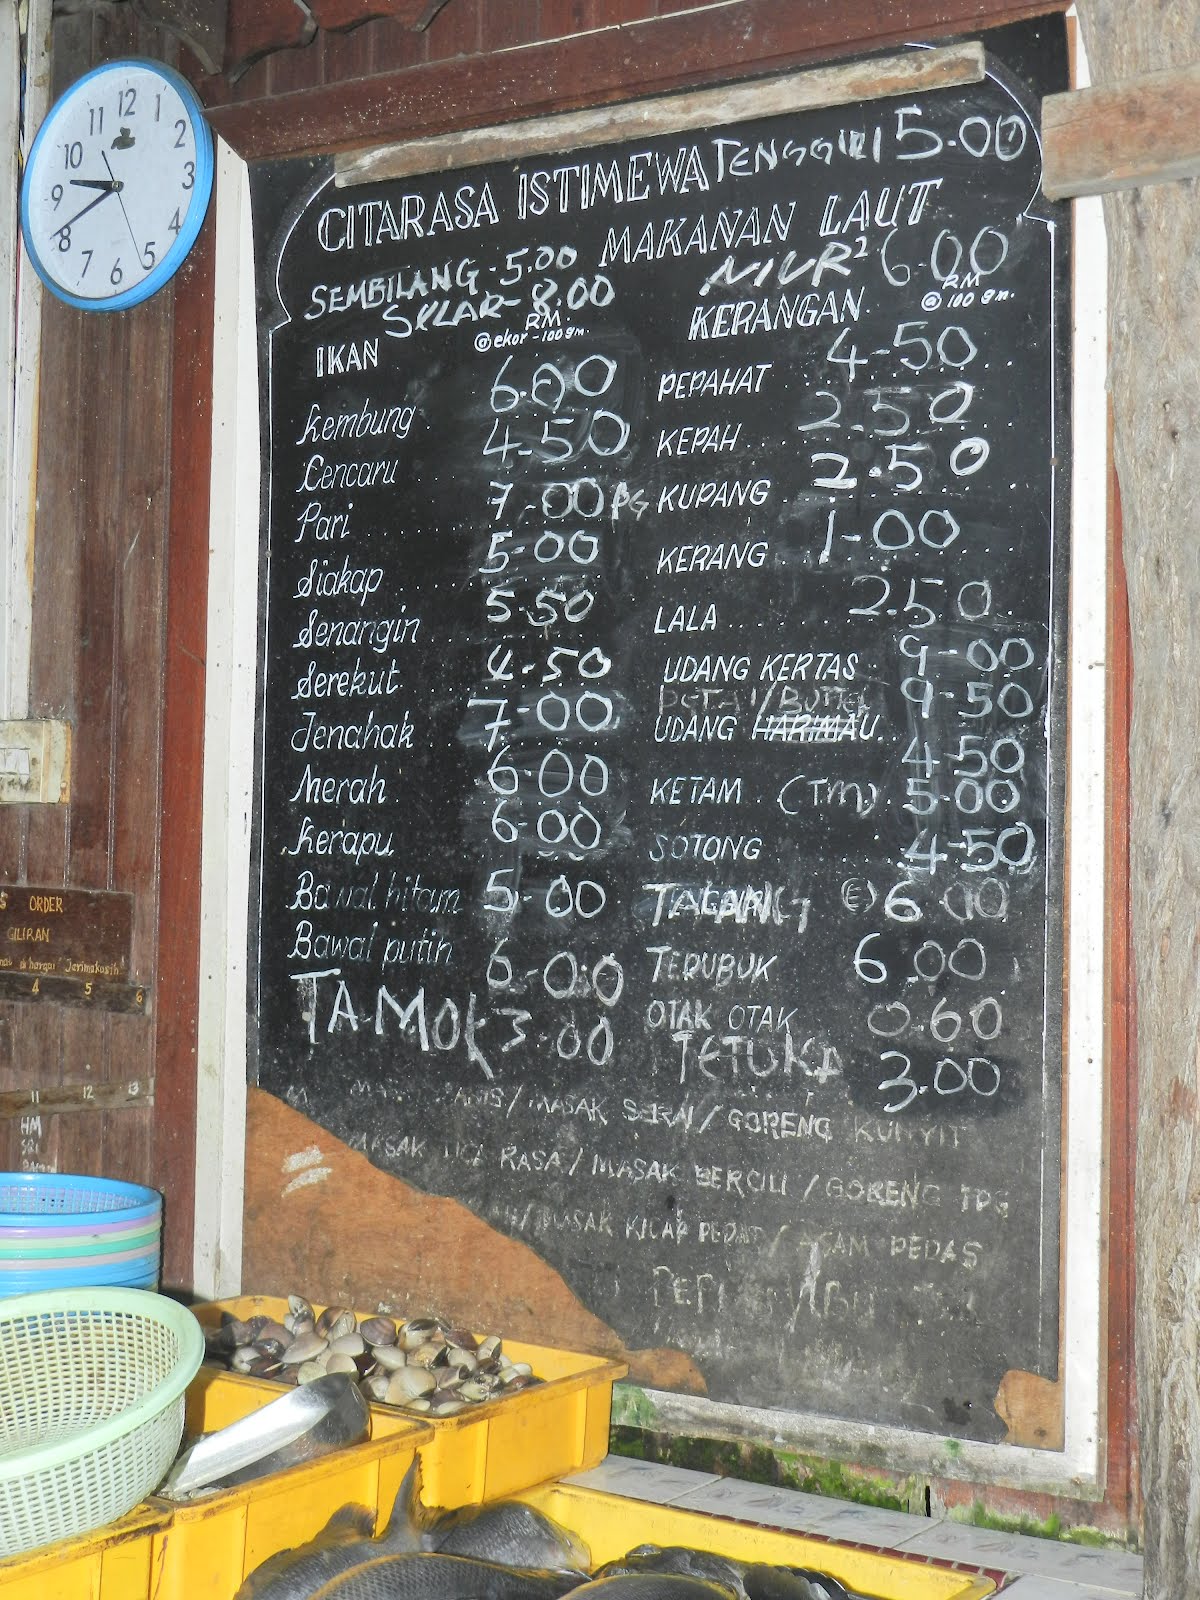 12
11 1
10 2
9 3
8 4
7 6 5
CITARASA ISTIMEWA TENGGIRI 5.00
MAKANAN LAUT
SEMBILANG - 5.00
SELAR - 8.00
NIUR² 6.00
IKAN RM @ ekor - 100 gm.
Kembung 6.00
Cencaru 4-50
Pari 7-00 PG
Siakap 5-00
Senangin 5.50
Serekut 4-50
Jenahak 7-00
Merah 6-00
Kerapu 6-00
Bawal hitam 5-00
Bawal putih 6-00
TAMOK 3.00
KERANGAN RM @ 100 gm.
PEPAHAT 4-50
KEPAH 2.50
KUPANG 2.50
KERANG 1-00
LALA 2.50
UDANG KERTAS 9-00
9-50
UDANG HARIMAU
4-50
KETAM (T.M) 5-00
SOTONG 4-50
TALANG (E) 6.00
TERUBUK 6.00
OTAK OTAK 0.60
TETUKA 3.00
/ MASAK SERAI / GORENG KUNYIT
MASAK TIGA RASA / MASAK BERCILI / GORENG TPG
/ MASAK KICAP PEDAS / ASAM PEDAS
ORDER
GILIRAN
Terimakasih
4 5 6
11 12 13
HM
SRI